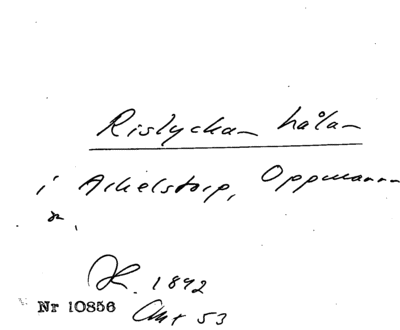 Rislyckan hålan
i Arkelstorp, Oppmanna
sn.
1892
Nr 10856
Ant 53